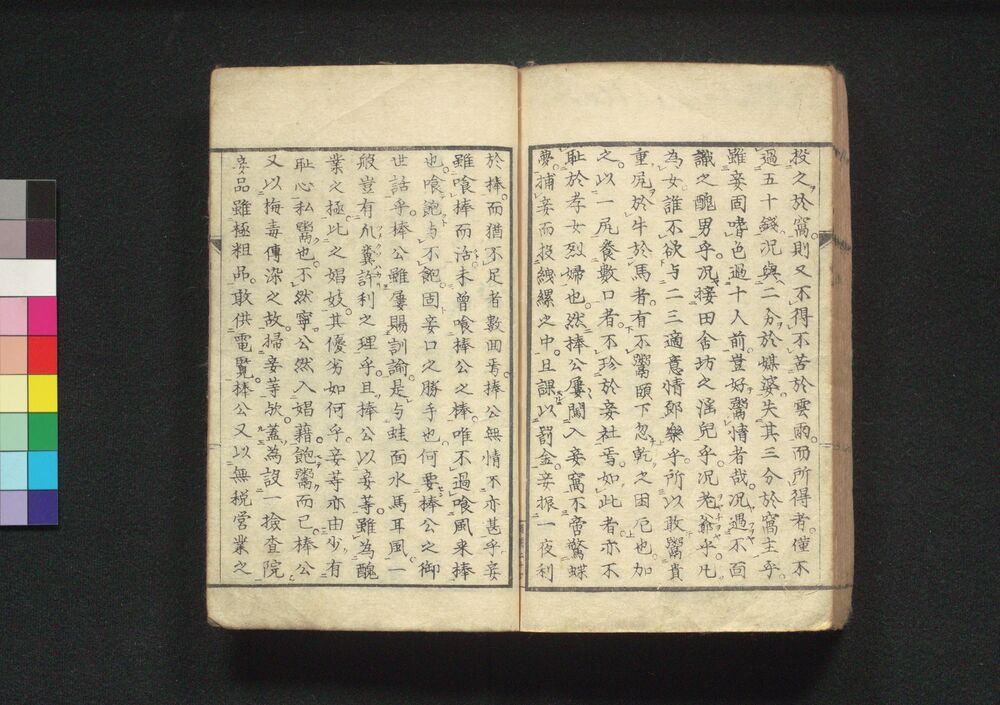 投之於窩則又不得不苦於雲雨而所得者僅不
過五十錢况與二分於媒婆失其三分於窩主乎
雖妾固嗜色過十人前豈好鬻情者哉况遇不面
識之醜男乎况接田舍坊之滛兒乎况老爺乎凡
為女誰不欲与二三適意情郎樂乎所以敢鬻貴
重尻於牛於馬者有不鬻頤下忽乾之困厄也加
之以一尻養數口者不珍於妾社焉如此者亦不
耻於孝女烈婦也然捧公屢闖入妾窩不啻驚蝶
夢捕妾而投縲之中且課以罰金妾振一夜利
於棒而猶不足者數回焉捧公無情不亦甚乎妾
雖喰捧而活未曾喰捧公之棒唯不過喰風来捧
也喰飽与不飽固妾口之勝手也何要捧公之御
世話乎捧公雖屢賜訓諭是与蛙面水馬耳風一
般豈有糞許利之理乎且捧公以妾等雖為醜
業之極比之娼妓其優劣如何乎妾等亦由少有
耻心私鬻也不然寧公然入娼籍飽鬻而已捧公
又以梅毒傳染之故掃妾等欤蓋為設一撿査院
妾品雖極粗昻敢供電覧捧公又以無税营業之